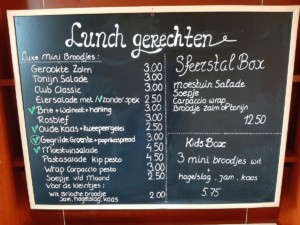 Lunch gerechten
Luxe Mini Broodjes:
Gerookte Zalm 3.00
Tonijn Salade 3.00
Club Classic 3.00
Eiersalade met/Zonder spek 2.50
Brie + Walnoot + honing 3.00
Rosbief 3.00
Oude Kaas + kweeperengelei 2.50
Gegrilde Groente + paprikaspread 3.00
Moestuinsalade 4.50
Pastasalade kip pesto 4.50
Wrap Carpaccio pesto 3.00
Soepje v/d Maand 2.50
Voor de kleintjes:
Wit Brioche broodje 2.00
Jam, hagelslag, kaas
Sfeerstal Box
moestuin Salade
Soepje
Carpaccio wrap
Broodje zalm of tonijn
12.50
Kids Box
3 mini broodjes wit
hagelslag, Jam, kaas
5.75